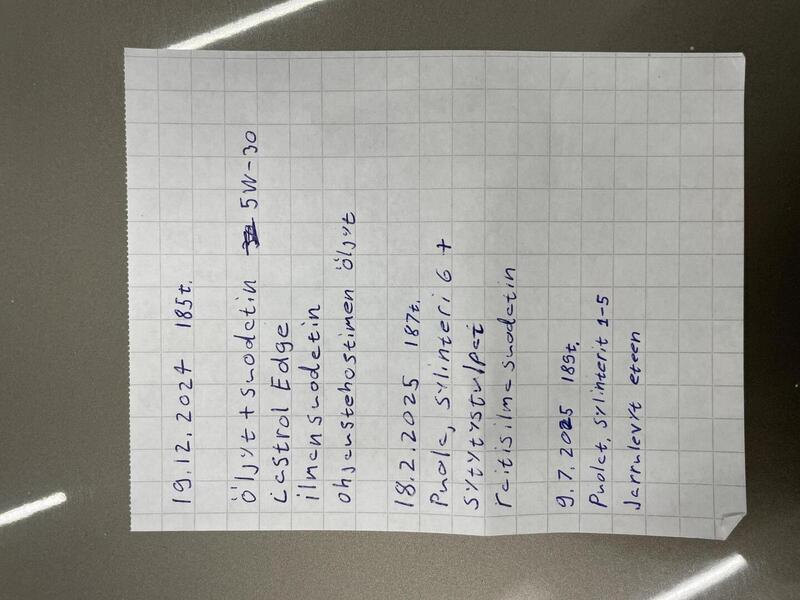 19.12.2024 185t.
Öljyt + suodatin 5W-30
Castrol Edge
ilmansuodatin
ohjaustehostimen öljyt
18.2.2025 187t.
Puola, sylinteri 6 +
sytytystulpat
raitisilmasuodatin
9.7.2025 189t.
Puolat, sylinterit 1-5
Jarrulevyt eteen